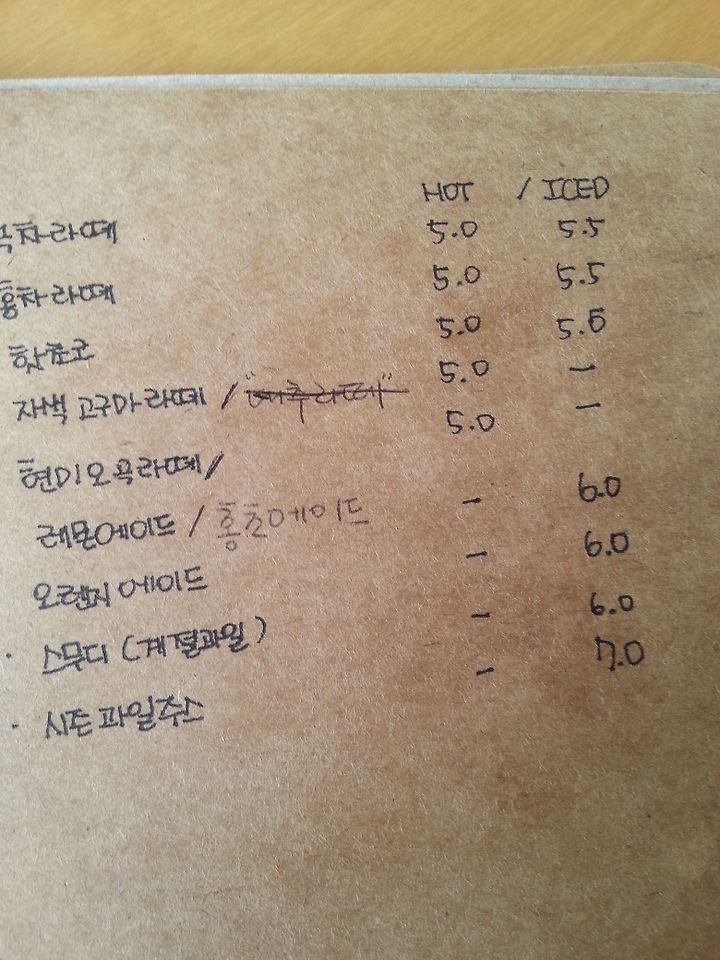 HOT / ICED
녹차라떼 5.0 5.5
홍차라떼 5.0 5.5
핫쵸코 5.0
자색 고구마라떼 / 5.0 -
현미오곡라떼 / 5.0 -
레몬에이드 / 홍초에이드 - 6.0
오렌지에이드 - 6.0
· 스무디 (계절과일) - 6.0
· 시즌과일주스 - 7.0